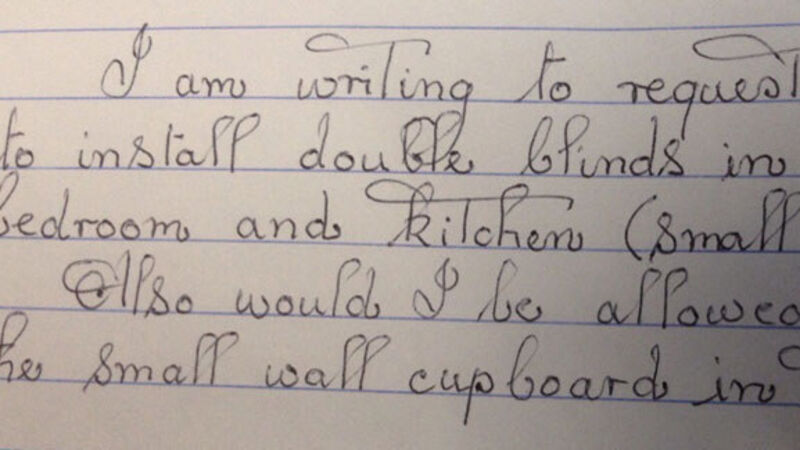 I am writing to request
to install double blinds in
bedroom and kitchen (small
Also would I be allowed
he small wall cupboard in